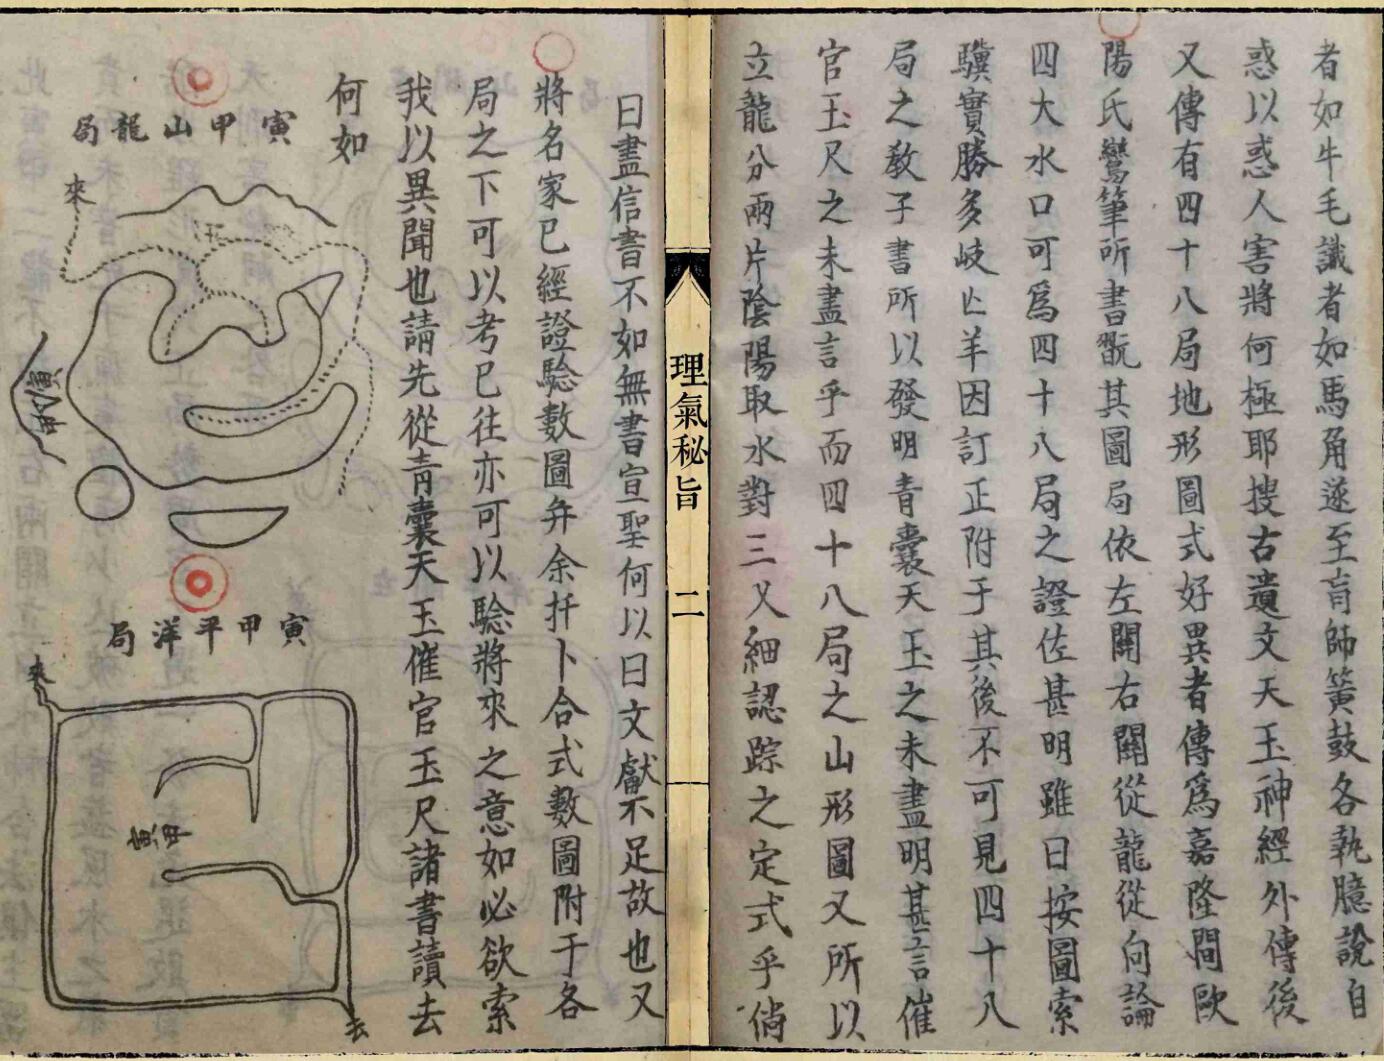 者如牛毛識者如馬角遂至盲師簧鼓各執臆說自
惑以惑人害將何極耶搜古遺文天玉神經外傳後
又傳有四十八局地形圖式好異者傳爲嘉隆間歐
陽氏鸞筆所書翫其圖局依左關右關從龍從向論
四大水口可爲四十八局之證佐甚明雖曰按圖索
驥實勝多岐亡羊因訂正附于其後不可見四十八
局之教子書所以發明青囊天玉之未盡明甚言催
官玉尺之未盡言乎而四十八局之山形圖又所以
立龍分兩片陰陽取水對三叉細認踪之定式乎倘
理氣秘旨 二
曰盡信書不如無書宣聖何以曰文獻不足故也又
將名家已經證驗數圖弁余扦卜合式數圖附于各
局之下可以考已往亦可以驗將來之意如必欲索
我以異聞也請先從青囊天玉催官玉尺諸書讀去
何如
寅甲山龍局
來
寅甲
寅甲平洋局
來
寅甲
去